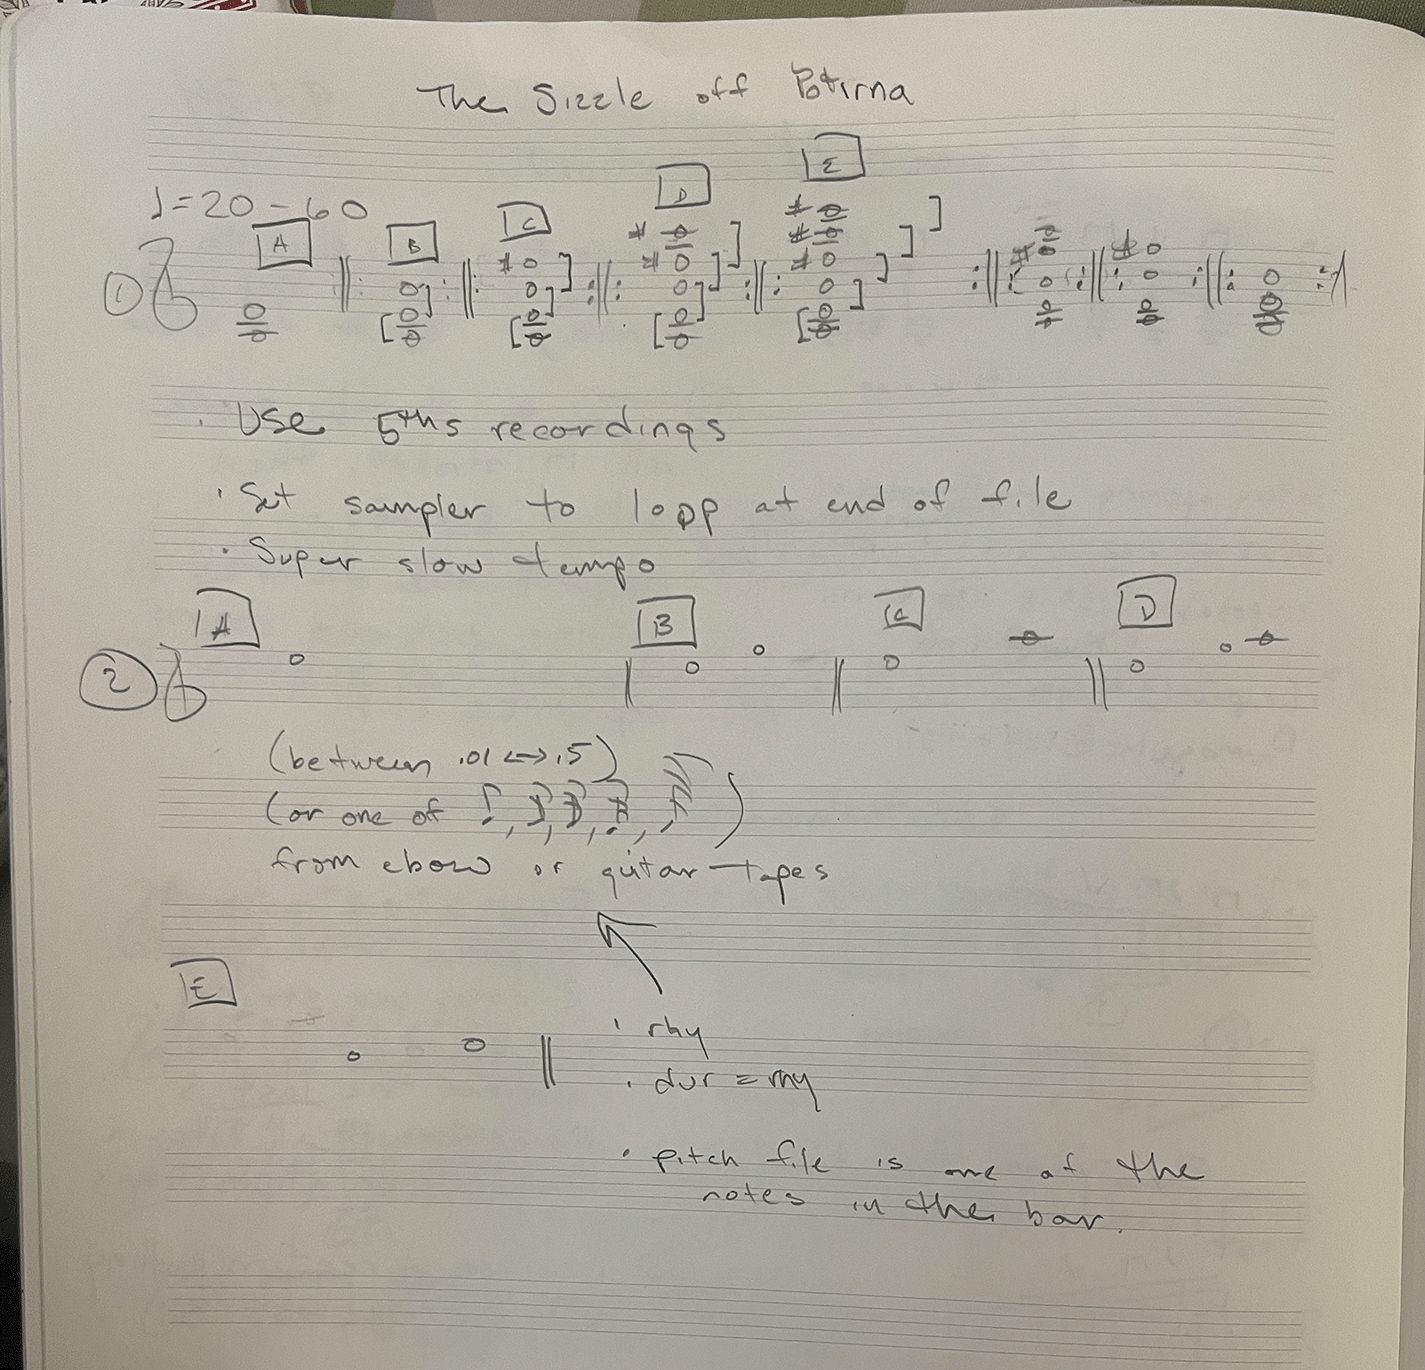 The Sizzle off Potirna
E
D
♩=20-60
C
A B
1
• Use 5ths recordings
• Set sampler to loop at end of file
• Super slow tempo
A B C D
2
(between .01 ↔ .5)
(or one of
from ebow or guitar tapes
E
• rhy
• dur = rhy
• pitch file is one of the
notes in the bar.